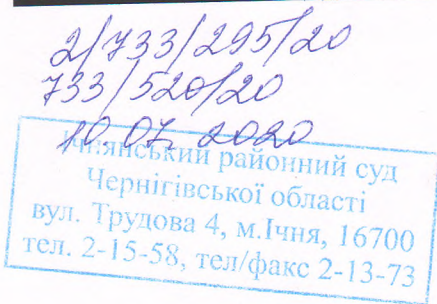 2/733/295/20
733/520/20
10.07.2020
Ічнянський районний суд
Чернігівської області
вул. Трудова 4, м.Ічня, 16700
тел. 2-15-58, тел/факс 2-13-73